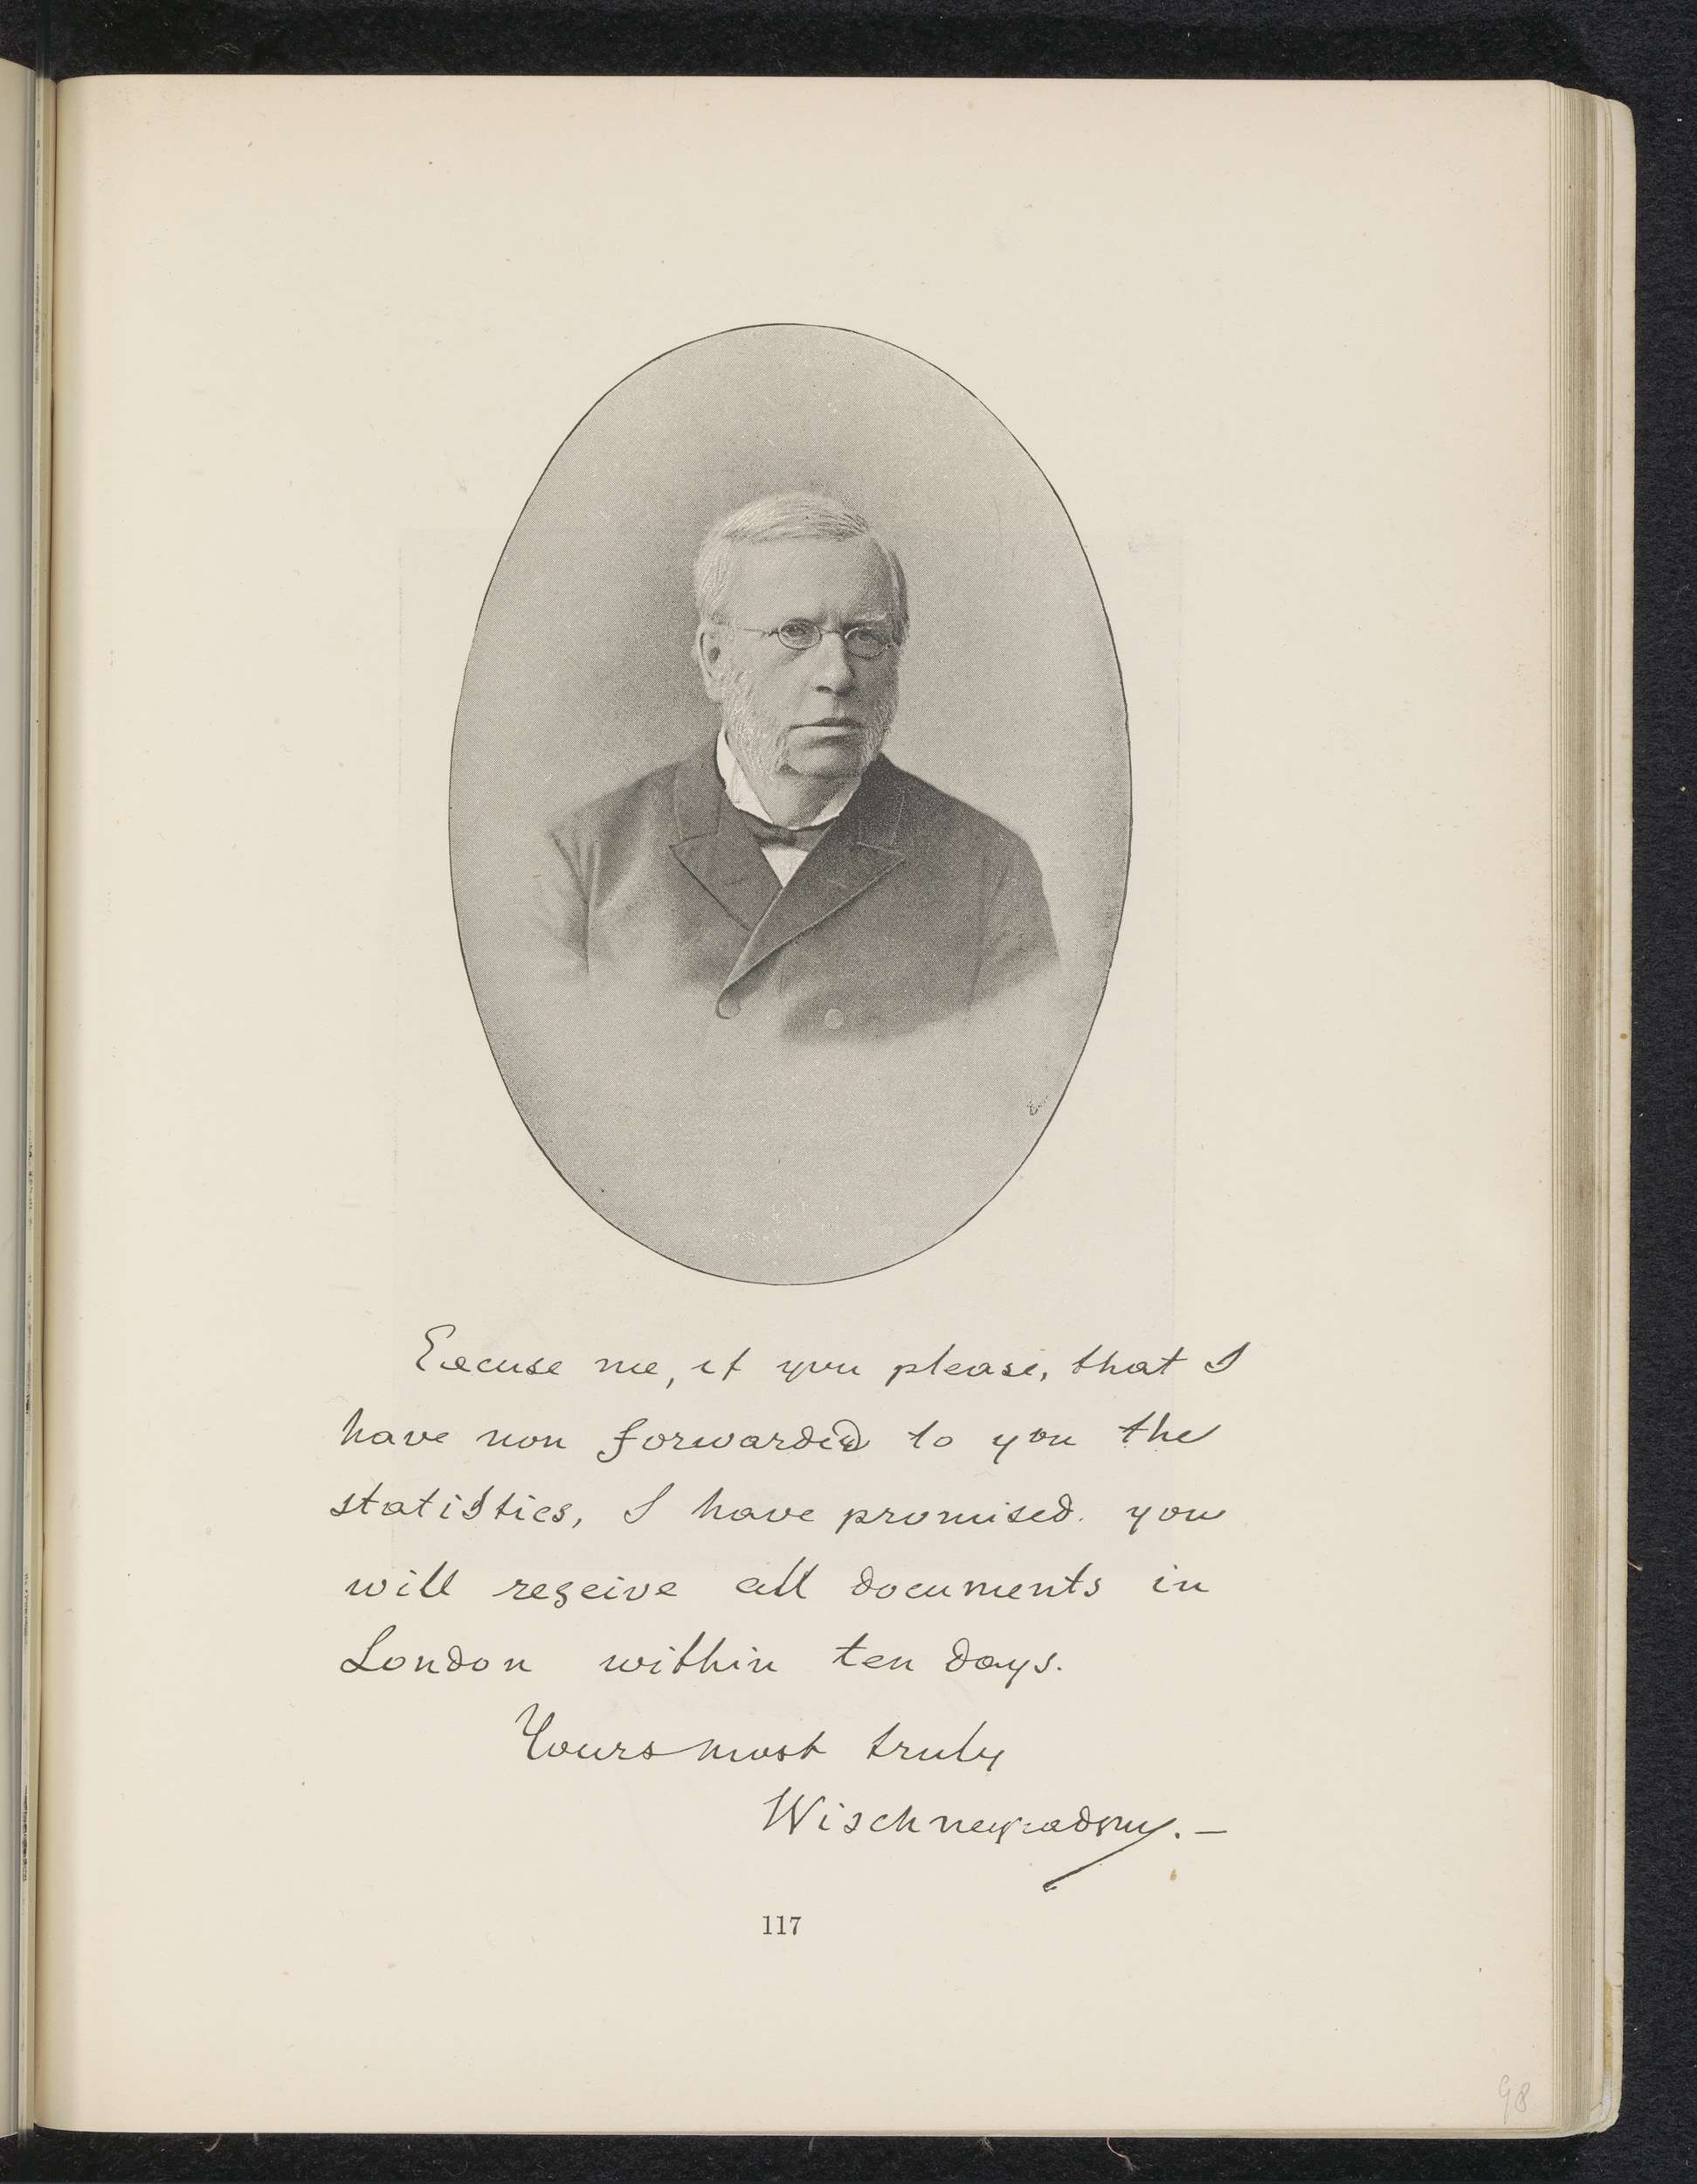 Excuse me, if you please, that I
have non forwarded to you the
statistics, I have promised. you
will reseive all documents in
London within ten days.
Yours most truly
Wischnegradsky. —
117
98